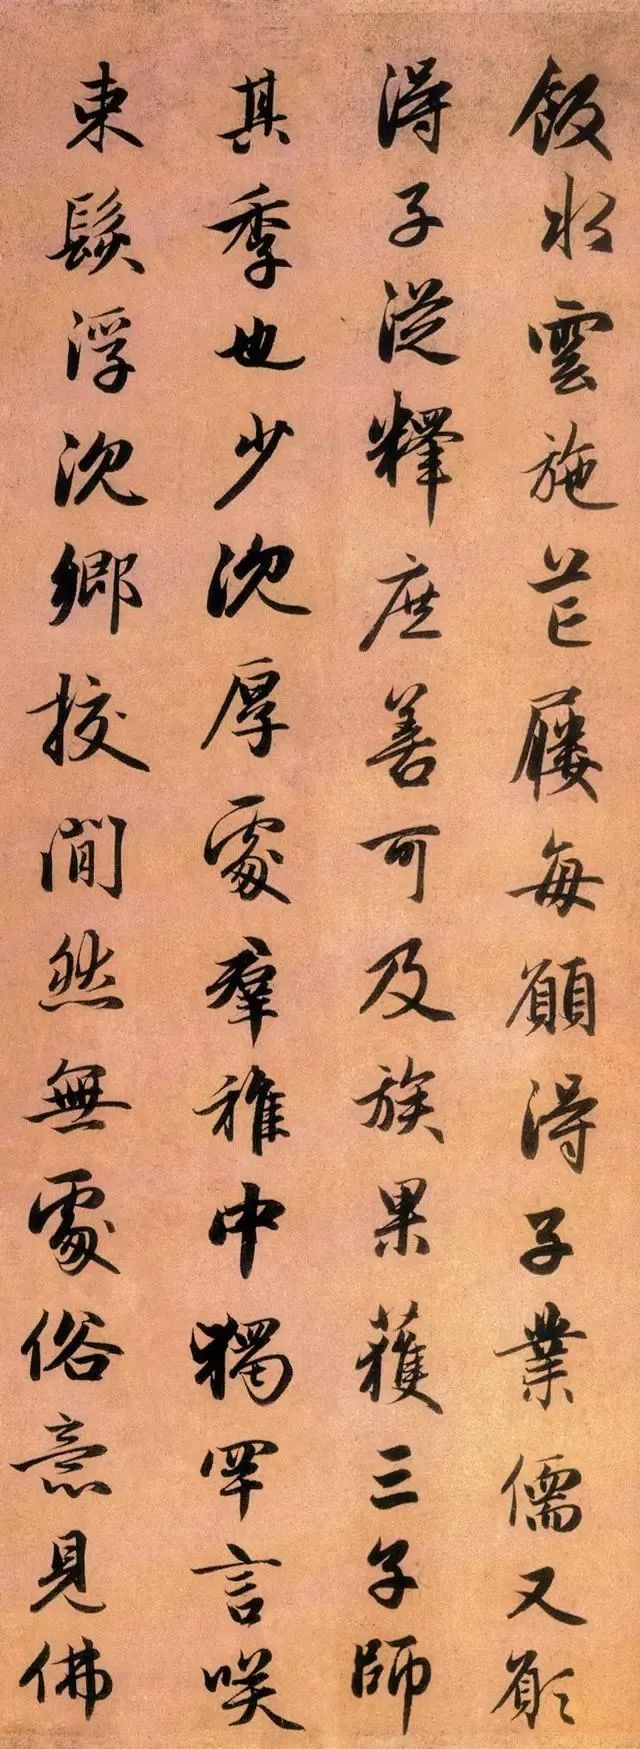 飯水雲施芒屨每願得子業儒又願
得子從釋庶善可及族果獲三子師
其季也少沈厚處羣稚中獨罕言咲
束髮浮沈鄉校閒然無處俗意見佛